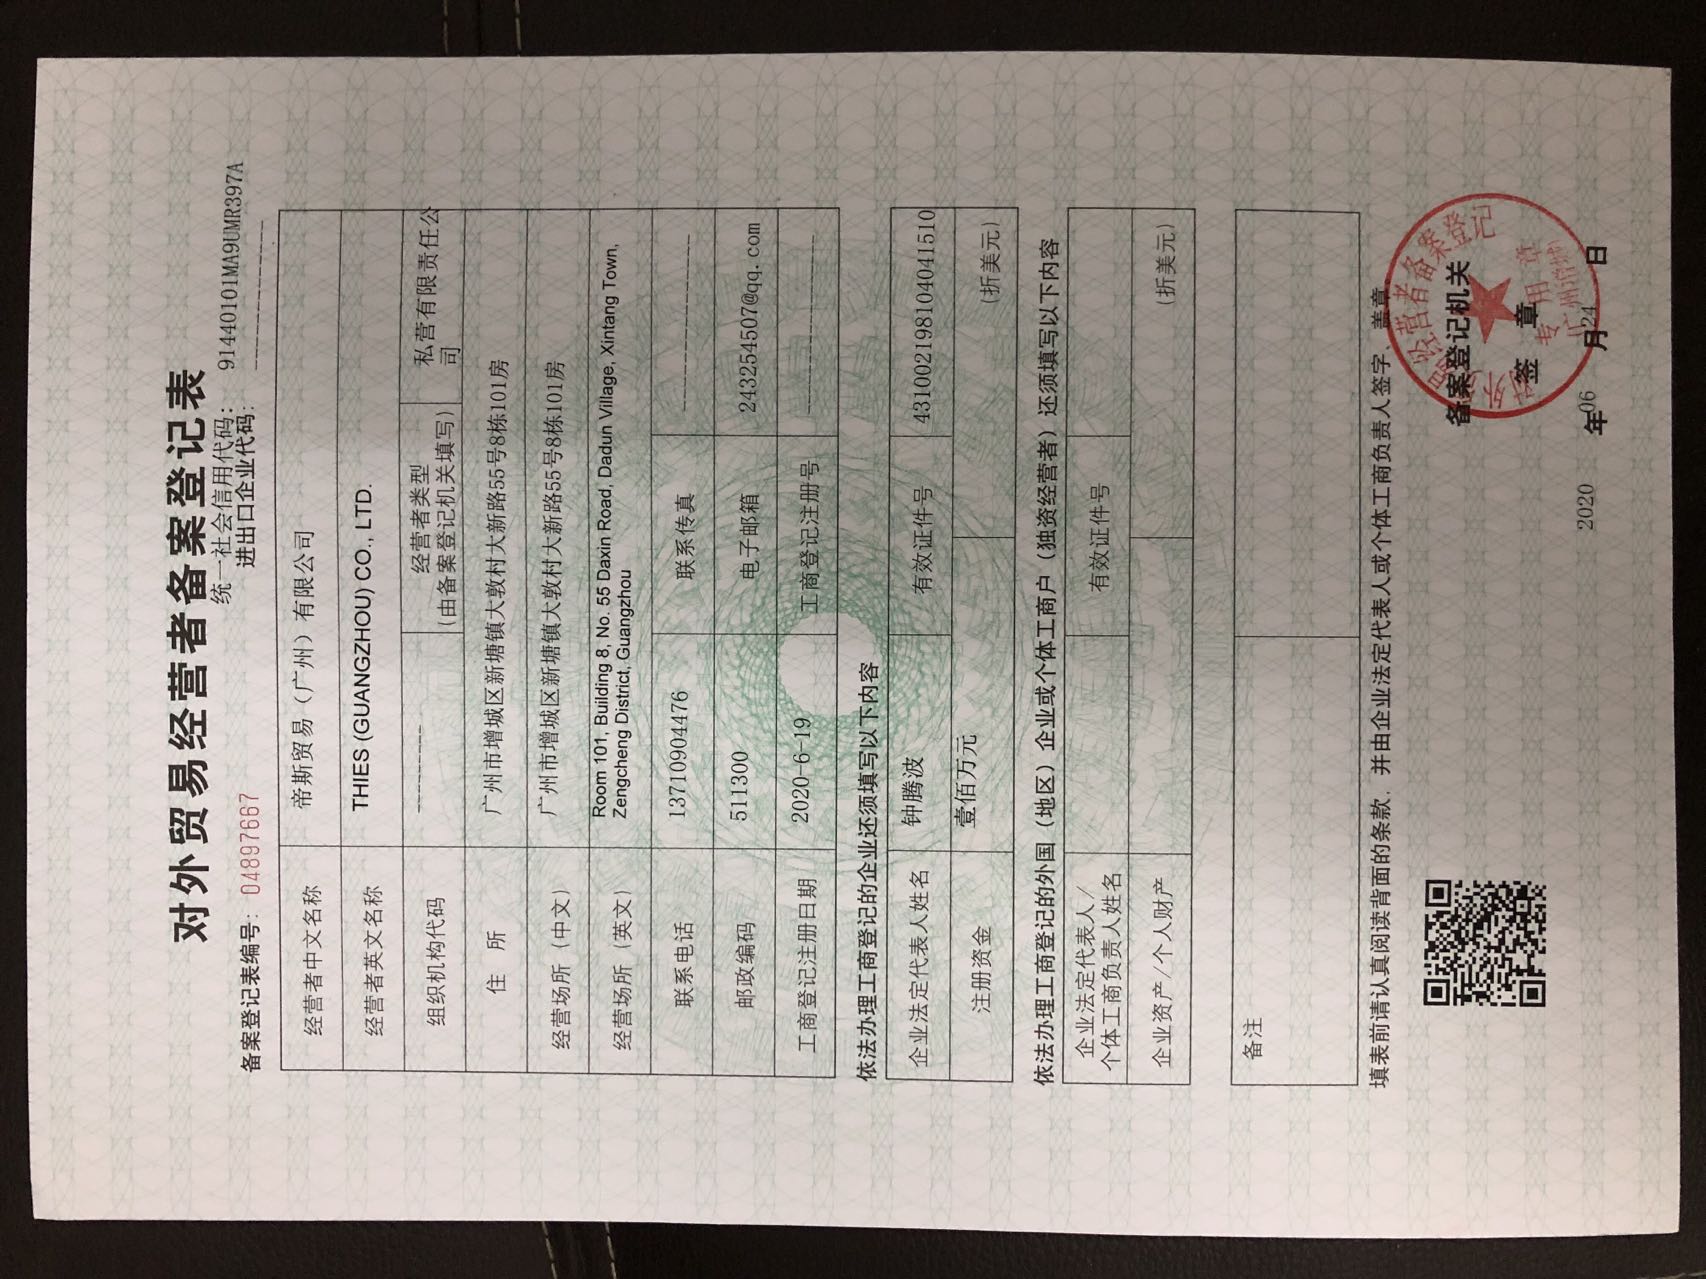 对外贸易经营者备案登记表
统一社会信用代码: 91440101MA9UMR397A
备案登记表编号: 04897667 进出口企业代码: ----------
经营者中文名称 帝斯贸易（广州）有限公司
经营者英文名称 THIES (GUANGZHOU) CO., LTD.
组织机构代码 --------- 经营者类型 (由备案登记机关填写) 私营有限责任公司
住 所 广州市增城区新塘镇大敦村大新路55号8栋101房
经营场所（中文） 广州市增城区新塘镇大敦村大新路55号8栋101房
经营场所（英文） Room 101, Building 8, No. 55 Daxin Road, Dadun Village, Xintang Town,
Zengcheng District, Guangzhou
联系电话 13710904476 联系传真 ----------
邮政编码 511300 电子邮箱 243254507@qq.com
工商登记注册日期 2020-6-19 工商登记注册号 ----------
依法办理工商登记的企业还须填写以下内容
企业法定代表人姓名 钟腾波 有效证件号 431002198104041510
注册资金 壹佰万元 (折美元)
依法办理工商登记的外国（地区）企业或个体工商户（独资经营者）还须填写以下内容
企业法定代表人/
个体工商负责人姓名 有效证件号
企业资产/个人财产 (折美元)
备注
填表前请认真阅读背面的条款，并由企业法定代表人或个体工商负责人签字、盖章
备案登记机关
签 章
2020 年 06 月 24 日
经营者备案登记
专用章